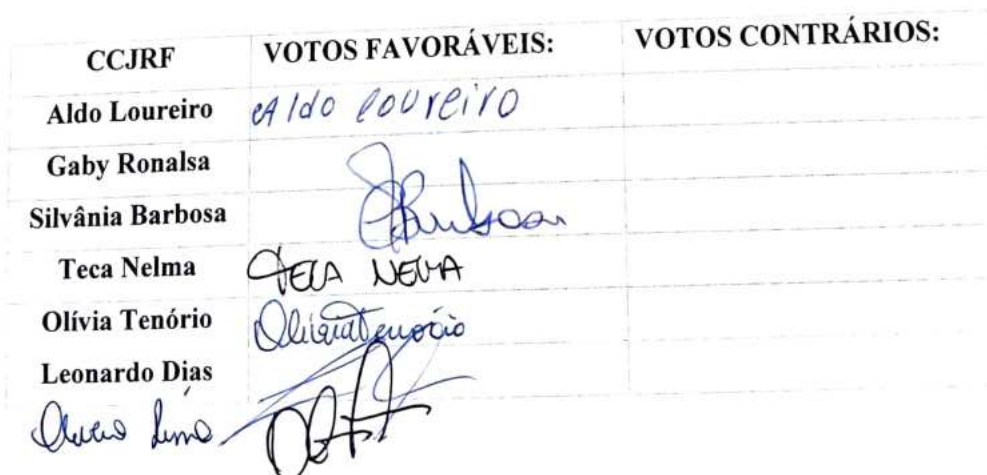 CCJRF VOTOS FAVORÁVEIS: VOTOS CONTRÁRIOS:
Aldo Loureiro Aldo Loureiro
Gaby Ronalsa
Silvânia Barbosa
Teca Nelma TECA NELMA
Olívia Tenório Olívia Tenório
Leonardo Dias